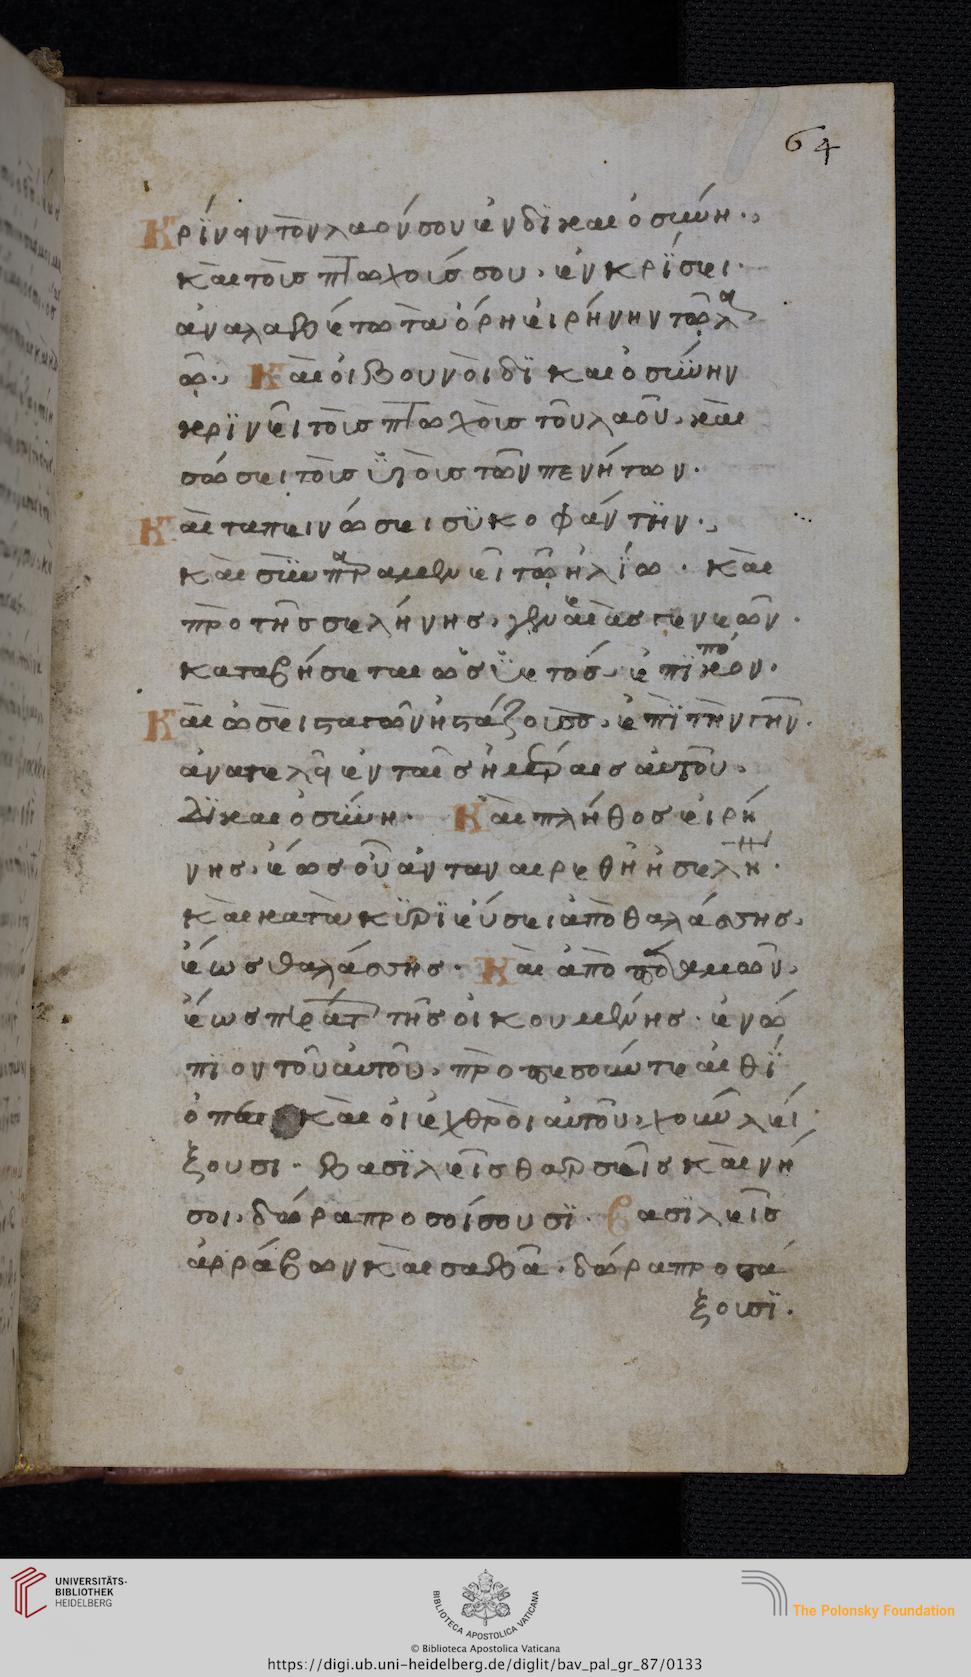 64
Κρίναι τὸν λαόν σου ἐν δικαιοσύνη.
καὶ τοῖς πτωχοῖς σου. ἐν κρίσει.
ἀναλαβέτω τὰ ὄρη εἰρήνην τῶ λα
ῶ. Καὶ οἱ βουνοὶ δικαιοσύνην
κρινεῖ τοῖς πτωχοῖς τοῦ λαοῦ. καὶ
σώσει τοῖς ὑιοῖς τῶν πενήτων.
Καὶ ταπεινώσει συκοφάντην.
καὶ συμπαραμενεῖ τῶ ἡλίω. καὶ
προ τῆς σελήνης. γενεὰς γενεῶν.
καταβήσεται ὡς ὑετός. ἐπὶ πόκον.
Καὶ ὡσεὶ σταγὼν ἡ στάζουσα. ἐπὶ τὴν γῆν.
ἀνατελεῖ ἐν ταῖς ἡμέραις αὐτοῦ.
δικαιοσύνη. Καὶ πλῆθος εἰρή
νης. ἕως οὗ ἀνταναιρεθῆ ἡ σελήνη.
καὶ κατακυριεύσει ἀπὸ θαλάσσης.
ἕως θαλάσσης. Καὶ ἀπὸ ποταμῶν.
ἕως περάτων τῆς οἰκουμένης. ἐνώ
πιον τοῦ αὐτοῦ. προπεσοῦνται αἰθί
οπες καὶ οἱ ἐχθροὶ αὐτοῦ χοῦν λεί
ξουσι. βασιλεῖς θαρσεῖς καὶ νῆ
σοι. δῶρα προσοίσουσι. βασιλεῖς
ἀρράβων καὶ σαβᾶ. δῶρα προσά
ξουσι.
UNIVERSITÄTS-
BIBLIOTHEK
HEIDELBERG
BIBLIOTECA APOSTOLICA VATICANA
The Polonsky Foundation
© Biblioteca Apostolica Vaticana
https://digi.ub.uni-heidelberg.de/diglit/bav_pal_gr_87/0133